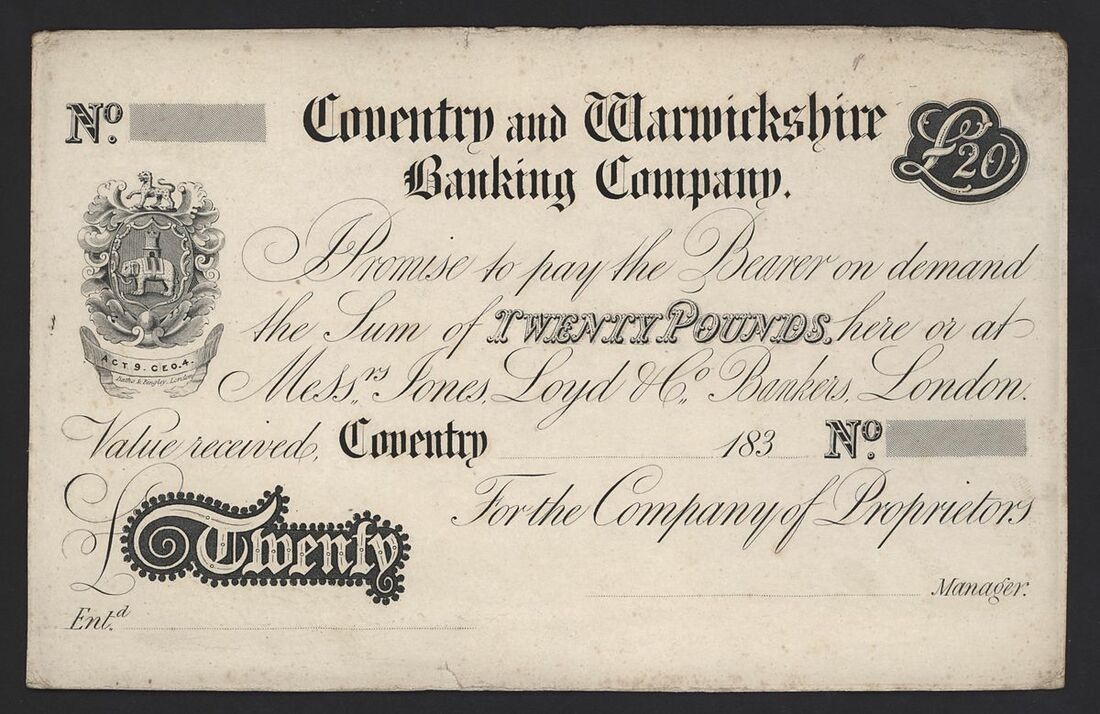 Nº.
Coventry and Warwickshire
Banking Company.
£20
I Promise to pay the Bearer on demand
the Sum of TWENTY POUNDS, here or at
Mess.rs Jones, Loyd & Cº. Bankers, London.
ACT. 9. GEO. 4.
London
Value received, Coventry 183 Nº.
For the Company of Proprietors
£ Twenty
Manager.
Ent.d